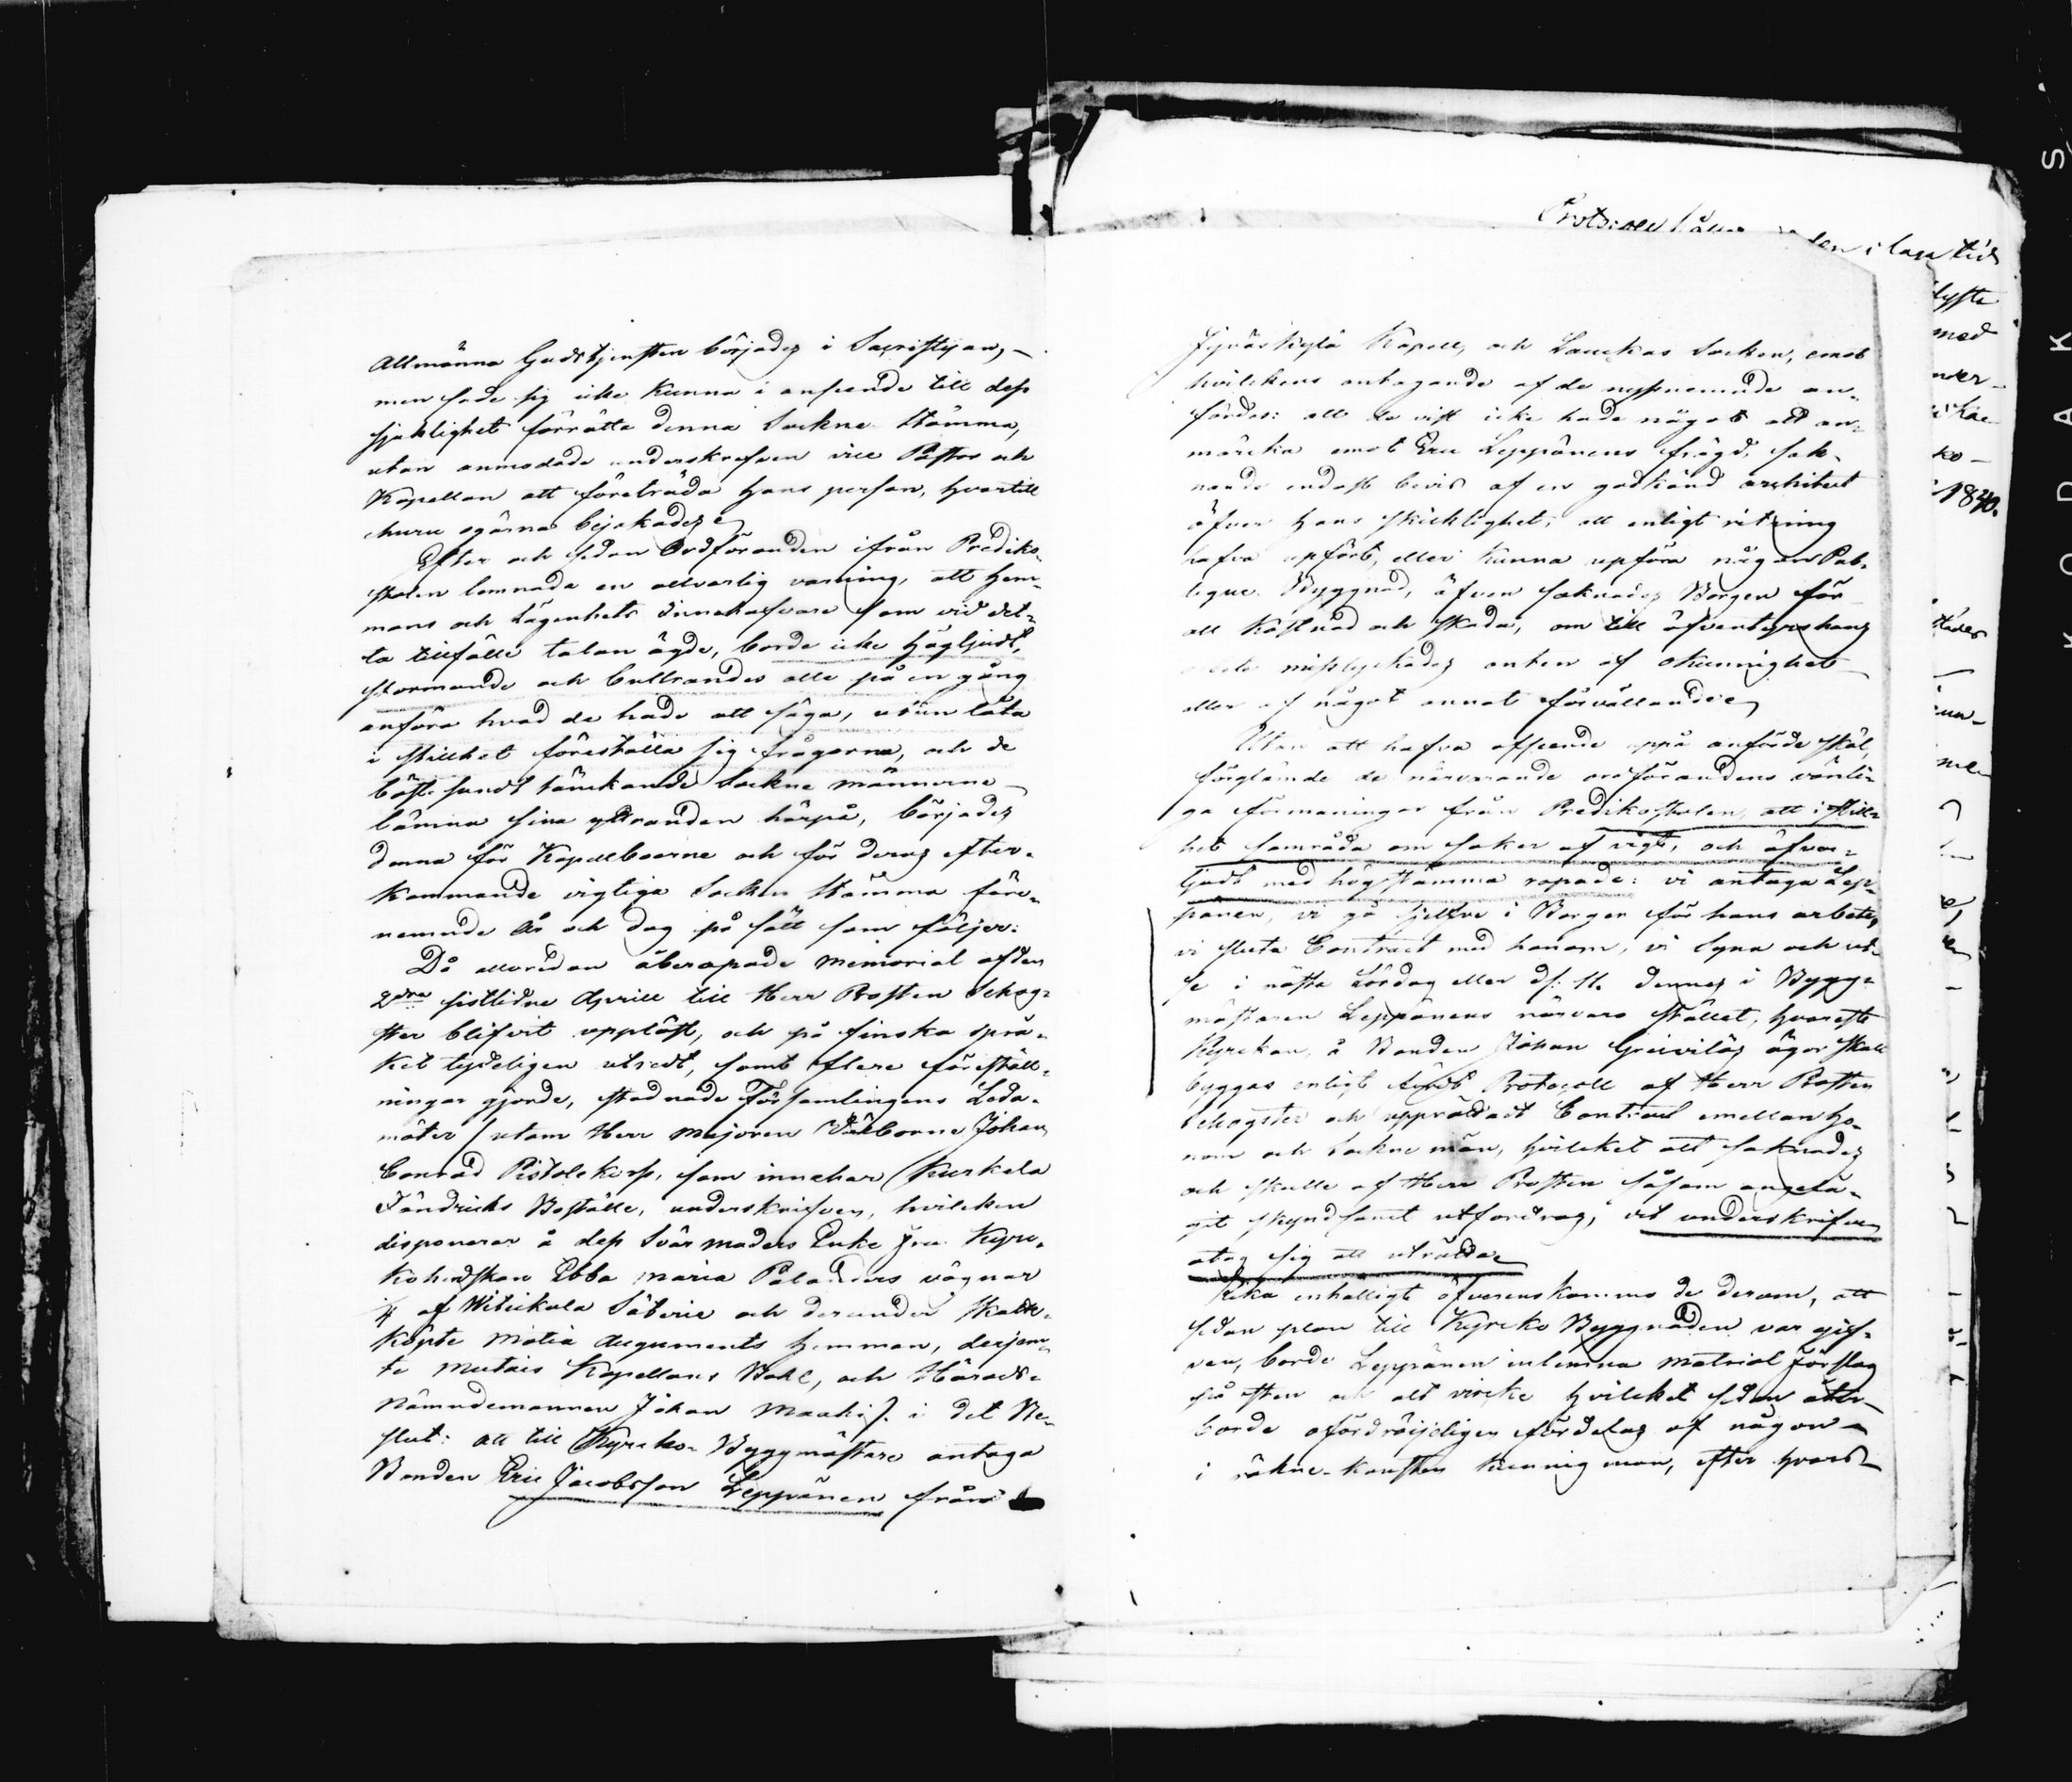 Allmänna Gudstjensten börjades i Sacristijan,
men sade sig icke kunna i anseende till dess
sjuklighet förrätta denna Sockne Stämma,
utan anmodade underskrefven vice Pastor och
Kapellan att företräda hans person, hvartill
ehuru ogärna bejakades
Efter och sedan Ordföranden ifrån Prediko-
stolen lemnade en allvarlig varning, att hem-
mans och Lägenhets innehafvare som vid det-
ta tillfälle talan ägde, borde icke högljudt,
stormande och bullrandes alla på en gång
anföra hvad de hade att säga, utan låta
i stillhet föreställa sig frågorna, och de
bäst sundt tänckande Sockne männerne
lämna sina yttranden härpå, börjades
denna för Kapellboerne och för deras efter-
kommande vigtiga Socken Stämma före-
nemnde år och dag på sätt som följer:
Då allaredan åberopade Memorial af den
2dra sistlidne Aprill till Herr Prosten Schog-
ster blifvit uppläst, och på finska språ-
ket tydeligen utredt, samt flere föreställ-
ningar gjorde, stadnade Församlingens Leda-
möter / utom Herr Majoren Välborne Johan
Conrad Pistolekors, som innehar Kurkela
Fändricks Boställe, underskrifven, hvilcken
disponerar å dess Svärmoders Enke Fru Kyrc-
koherdskan Ebba Maria Palanders vägnar
1/4 af Witickala Säterie och derunder Skatte-
köpte Matia Augments hemman, desjem-
te Multias Kapellans Bohl, och Härads-
Nämndemannen Johan Maahi /. i det Be-
slut: att till Kyrcko Byggmästare antaga
Bonden Eric Jacobsson Leppänen från
Jyväskylä Kapell, och Lauckas Socken, emot
hvilckens antagande af de nyssnemnde an-
fördes: att de visst icke hade något att an-
märcka emot Eric Leppänens frägd, sak-
nande endast bevis af en godkänd architect
öfver hans skicklighet, att enligt ritning
hafva upfört, eller kunna upföra någon Pub-
lique Byggnad, äfven saknades Borgen för
all kostnad och skada, om till äfventyrs hans
misslyckades anten af okunnighet
eller af något annat förvållande
Utan att hafva afseende uppå anförde skäl,
förglömde de närvarande ordförandens vänli-
ga förmaningar från Predikostolen, att i still-
het samråda om saker af vigt, och öfver-
ljudt med hög stämma ropade: vi antaga Lep-
pänen, vi gå sjelfve i Borgen för hans arbete,
vi sluta Contract med honom, vi Syna och ut-
se i nästa Lördag eller d: 11. dennes i Bygg-
mästaren Leppänens närvaro stället, hvarest
Kyrckan, å Bonden Johan Greivilas ägor skall
byggas enligt Protocoll af Herr Prosten
Schogster och upprättadt Contract emellan ho-
nom och Sockne män, hvilcket allt saknades
och skulle af Herr Prosten såsom angelä-
git skyndsamt utfordras, det underskrifven
åtog sig att uträtta
Lika enhälligt öfverenskommo de derom, att
sedan plan till Kyrcko Byggnaden var gif-
ven, borde Leppänen inlemna matrial Förslag
på sten och allt vircke hvilcket sedan åter
borde ofördröijeligen fördelas af någon
i räkne-konsten kunnig man, efter hvars
Protocoll hållet
i laga tid
lyste
med
1840.